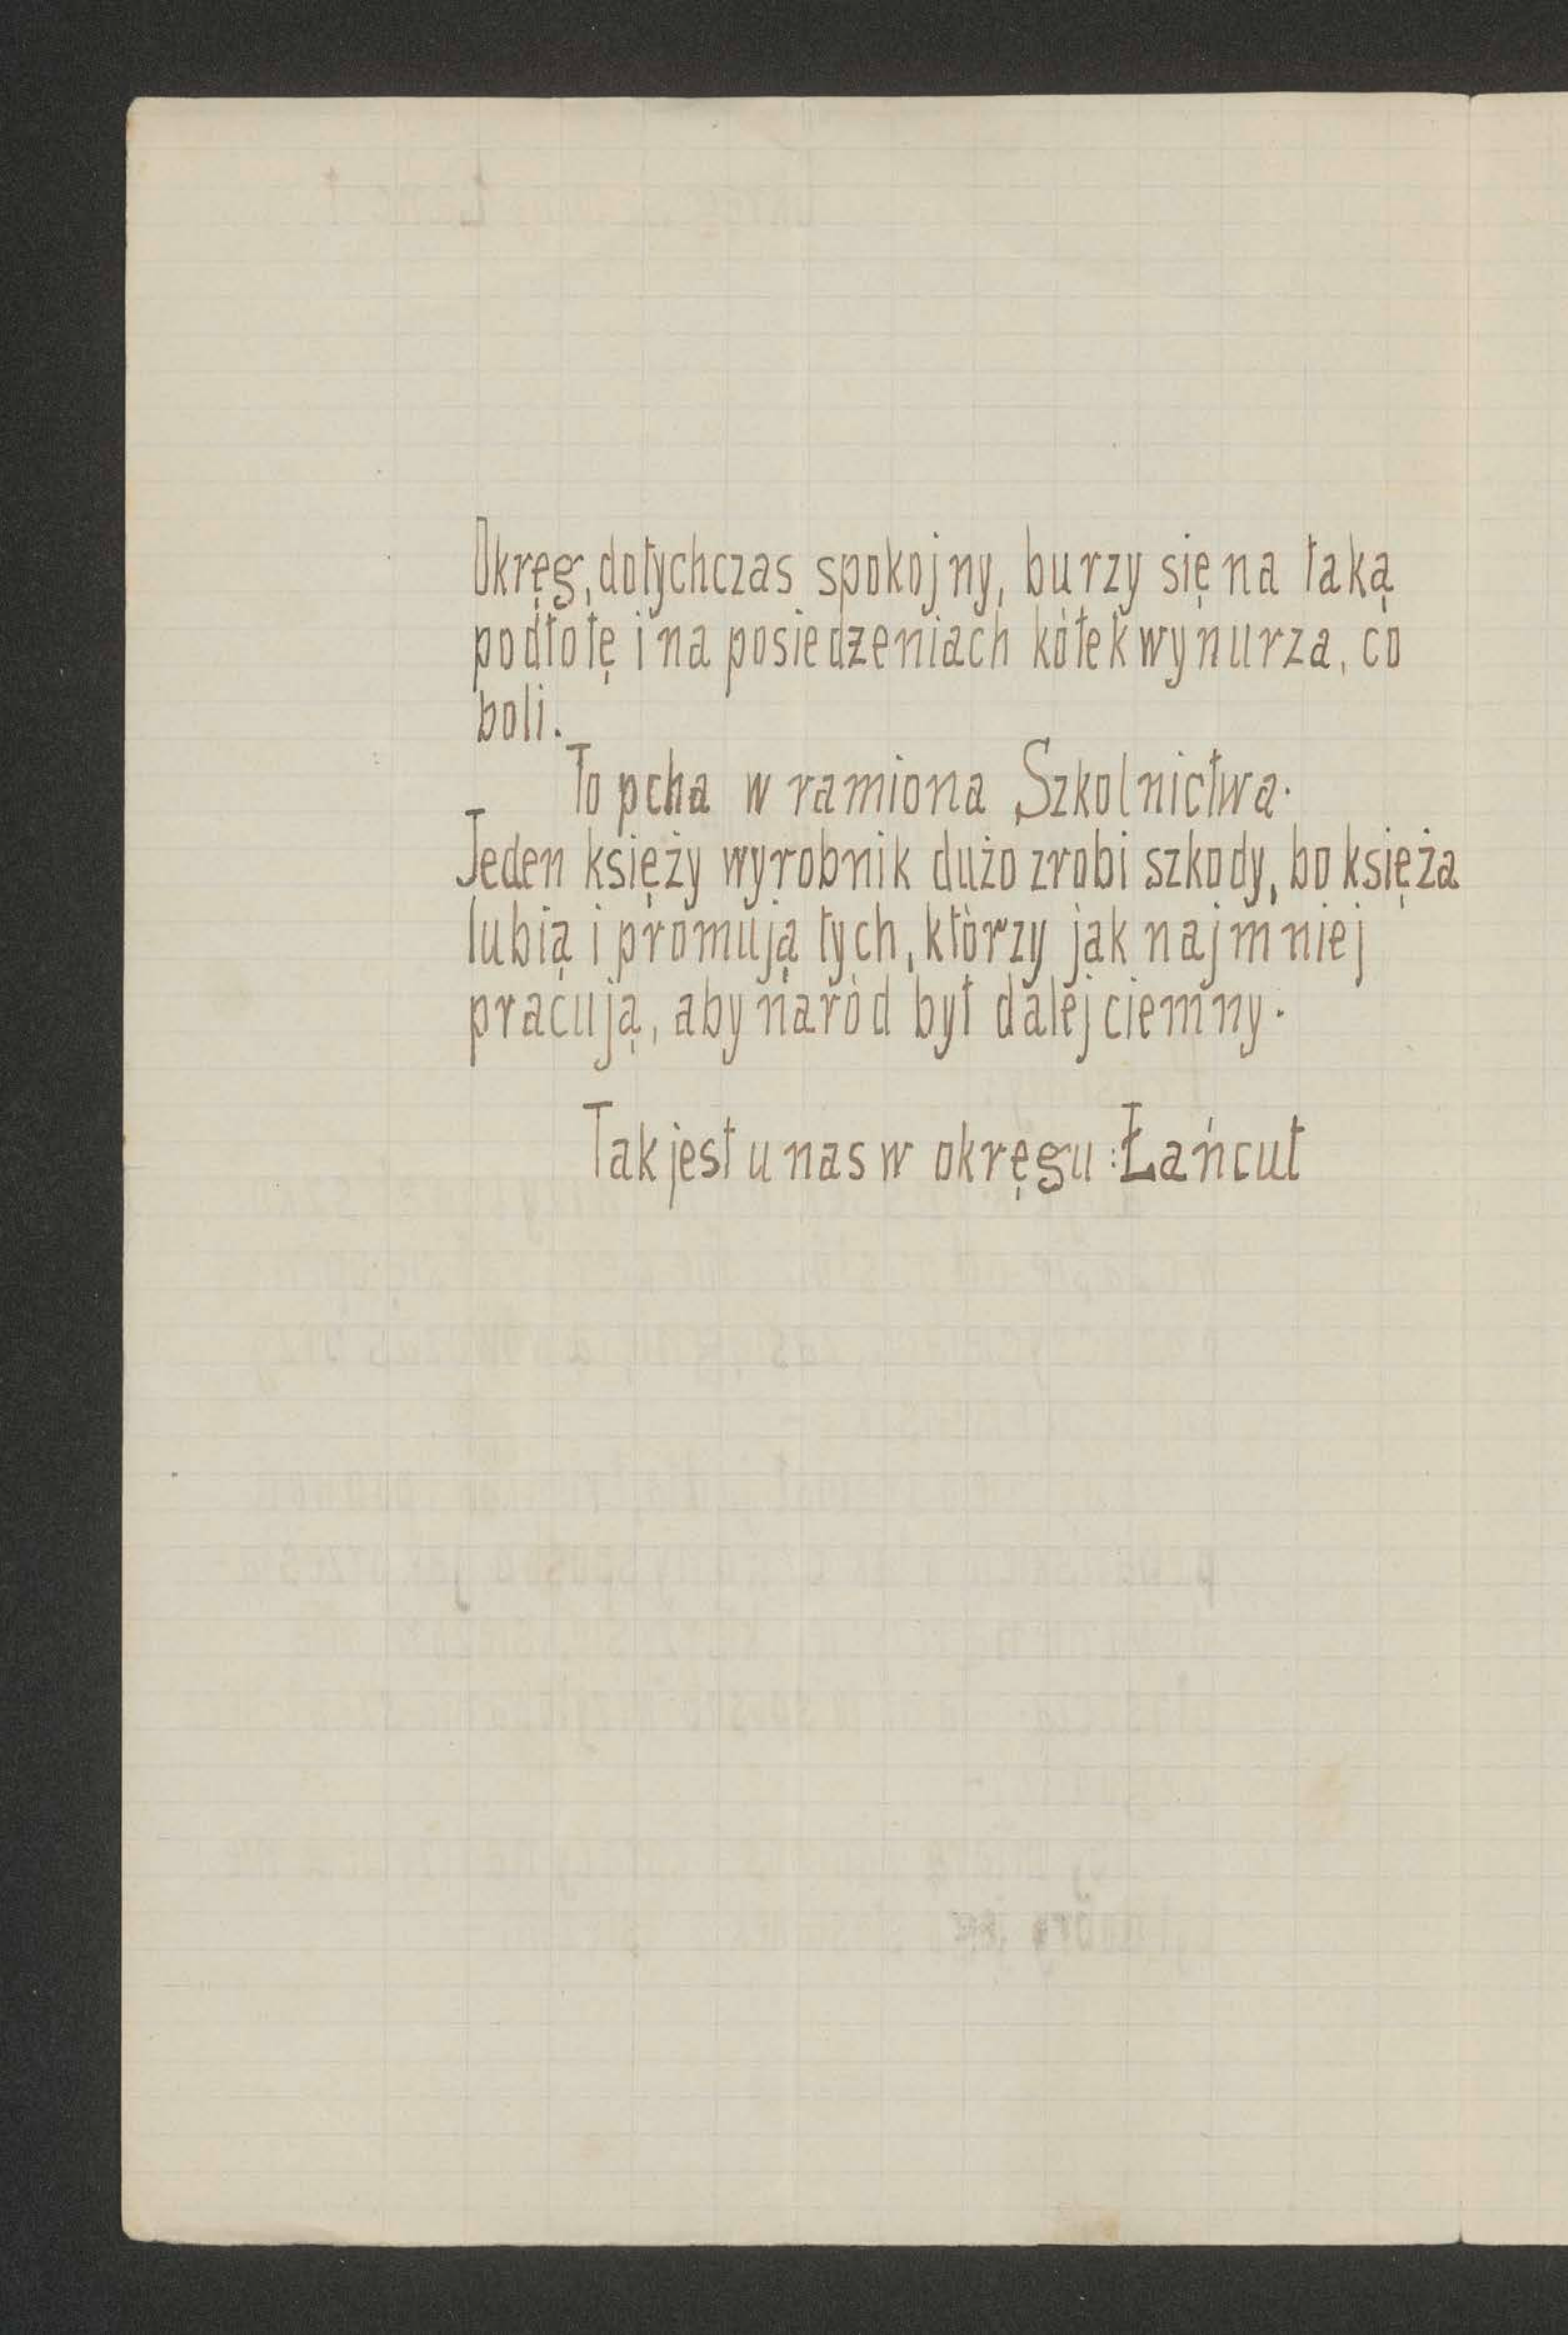 Okręg, dotychczas spokojny, burzy się na taką
podłotę i na posiedzeniach kółek wynurza, co
boli.
To pcha w ramiona Szkolnictwa.
Jeden księży wyrobnik dużo zrobi szkody, bo księża
lubią i promują tych, którzy jak najmniej
pracują, aby naród był dalej ciemny.
Tak jest u nas w okręgu: Łańcut